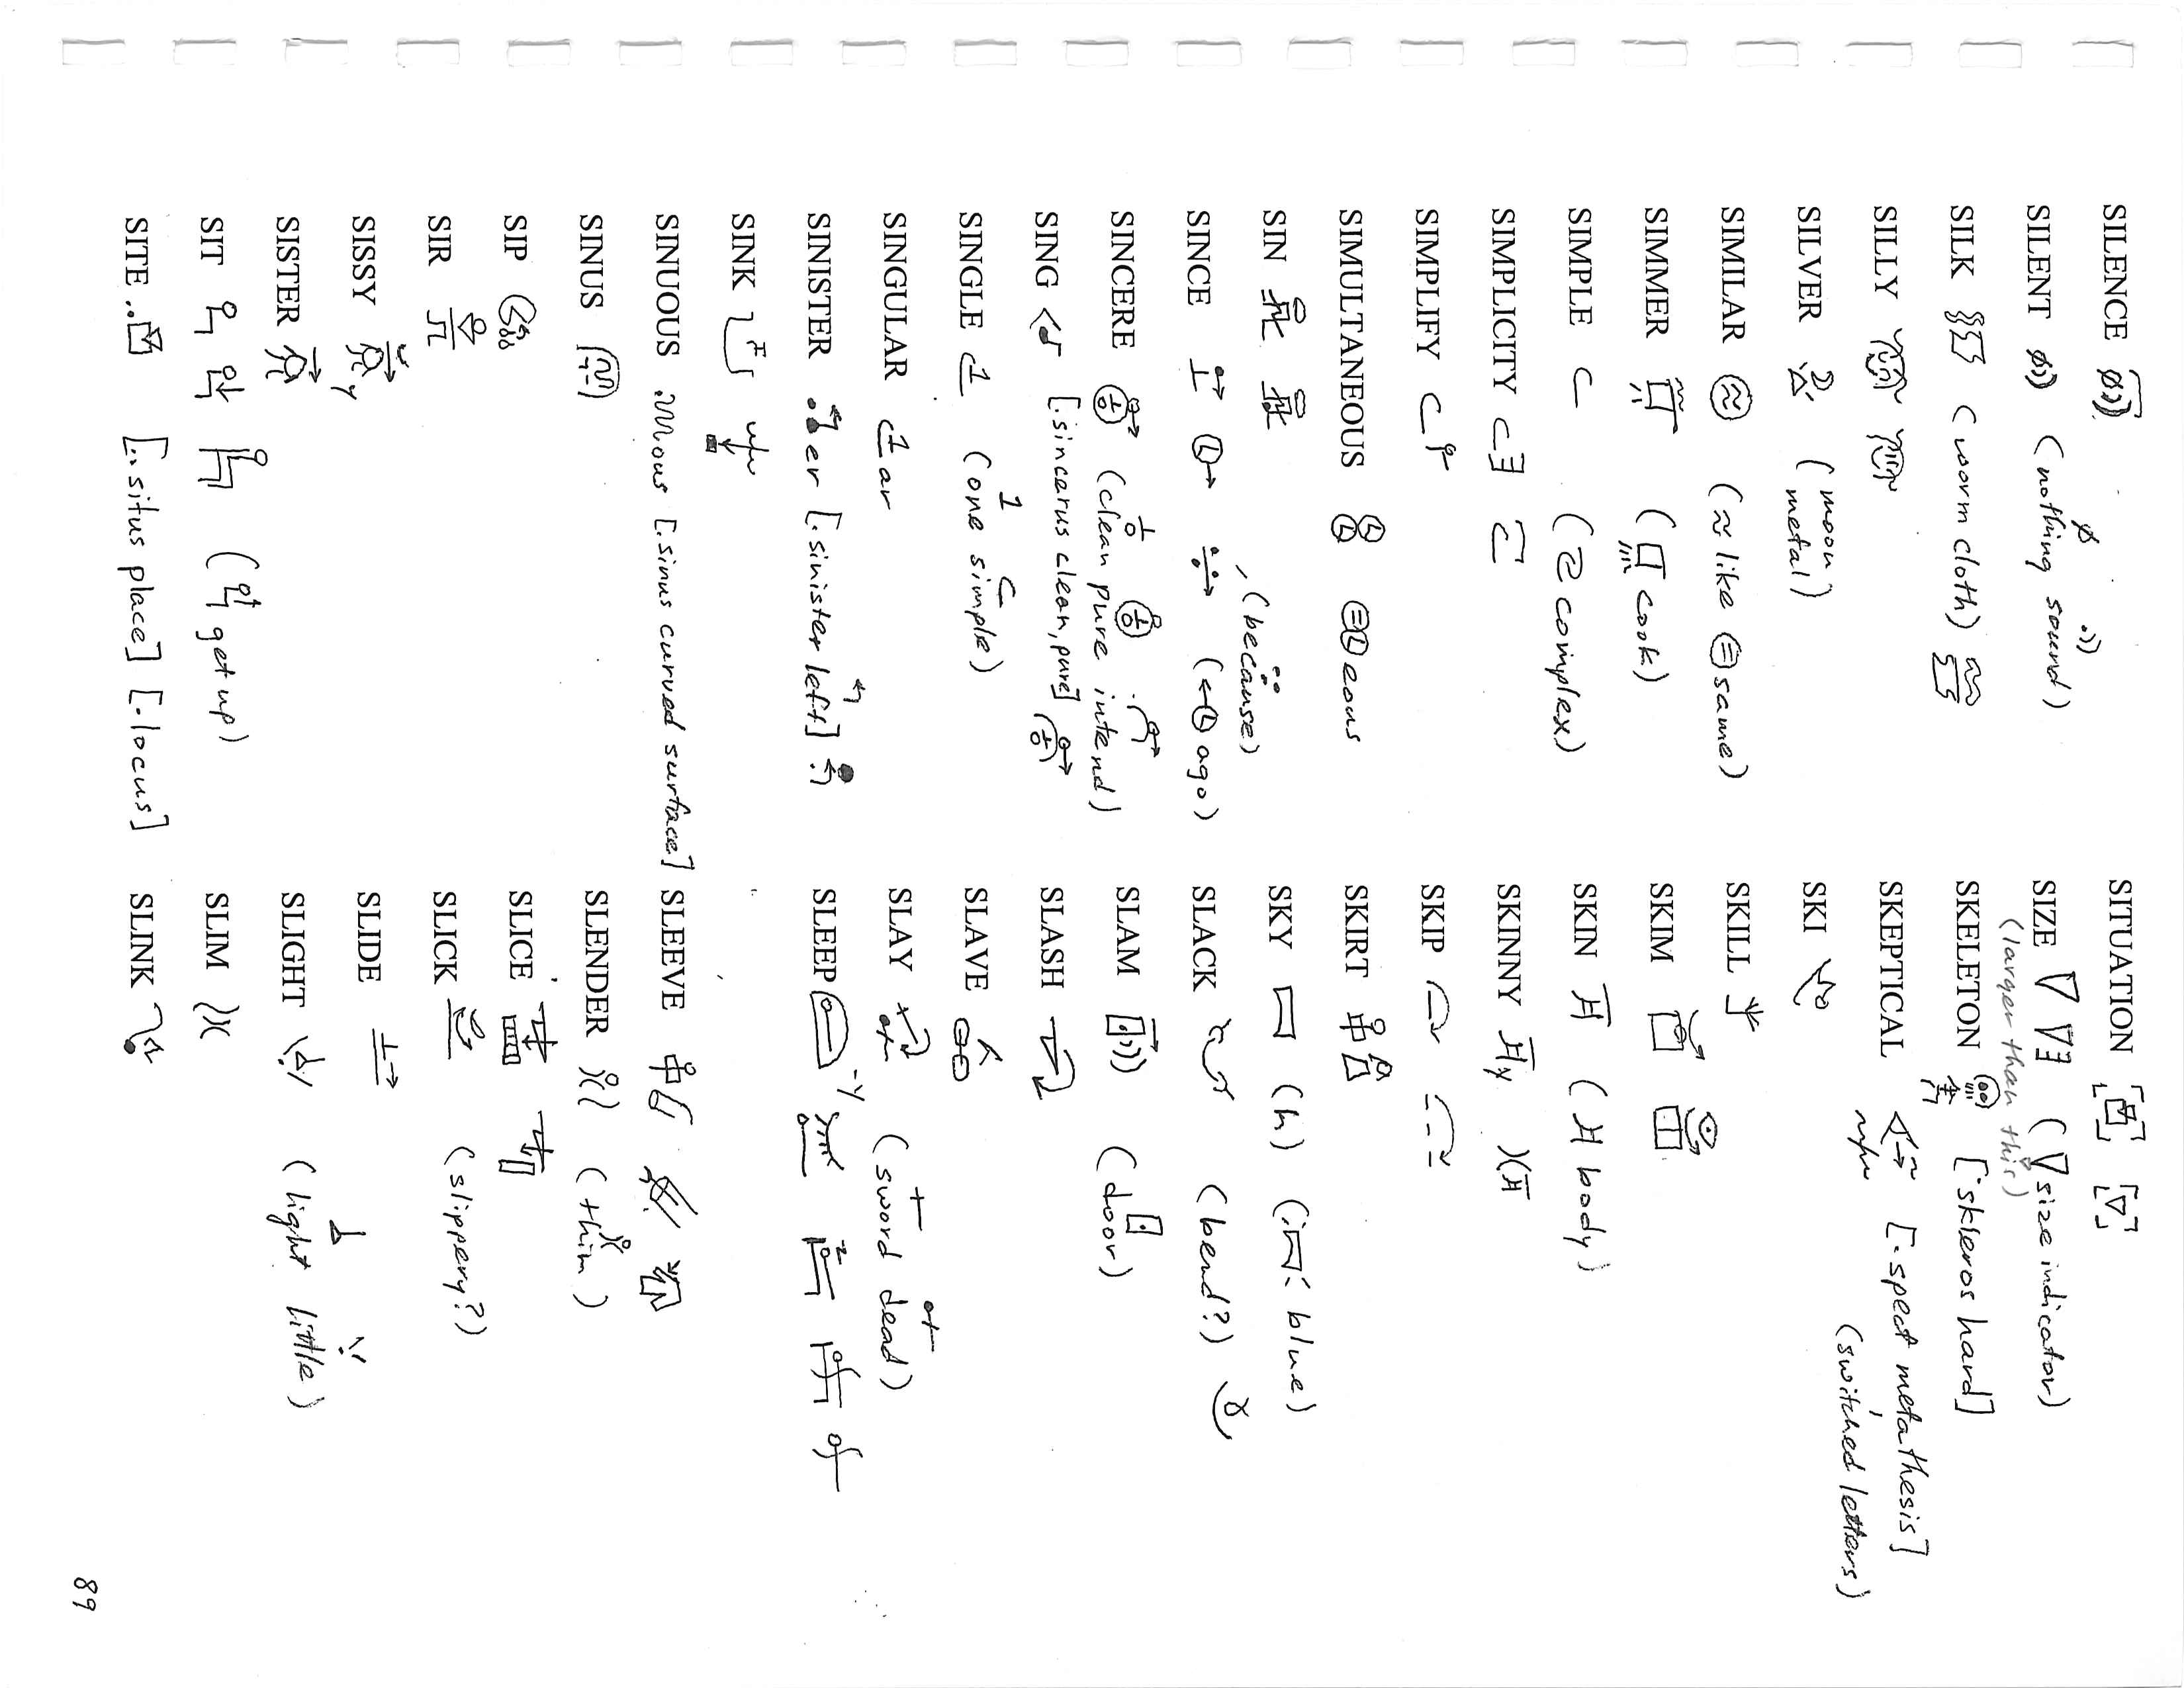 SILENCE
SILENT (nothing sound)
SILK (worm cloth)
SILLY
SILVER (moon metal)
SIMILAR (≈ like = same)
SIMMER (cook)
SIMPLE (complex)
SIMPLICITY
SIMPLIFY
SIMULTANEOUS eous
SIN
SINCE (ago) , (because)
SINCERE (clean pure intend)
[.sincerus clean, pure]
SING
SINGLE 1 (one simple)
SINGULAR 1 ar
SINISTER er [.sinister left]
SINK
SINUOUS ous [.sinus curved surface]
SINUS
SIP
SIR
SISSY y
SISTER
SIT (get up)
SITE [..situs place] [.locus]
SITUATION
SIZE (size indicator)
(larger than this)
SKELETON [skleros hard]
SKEPTICAL [.spect metathesis]
(switched letters)
SKI
SKILL
SKIM
SKIN (body)
SKINNY y
SKIP
SKIRT
SKY (h) (blue)
SLACK (bend?)
SLAM (door)
SLASH
SLAVE
SLAY (sword dead)
SLEEP
SLEEVE
SLENDER (thin)
SLICE
SLICK (slippery?)
SLIDE
SLIGHT (light little)
SLIM
SLINK
89